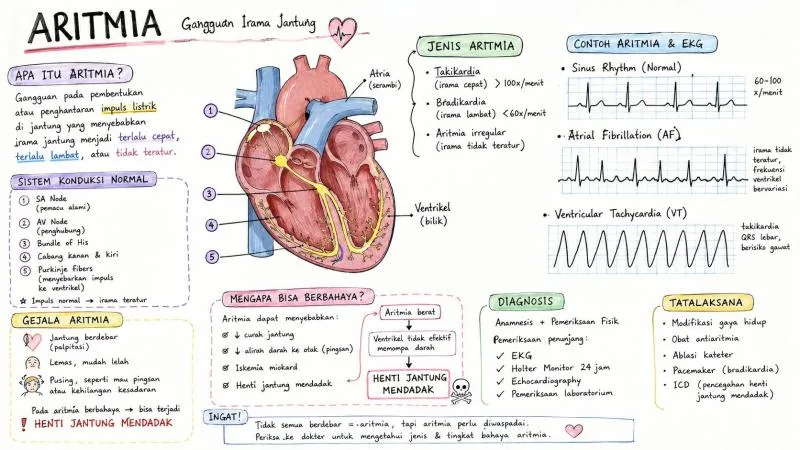 ARITMIA
Gangguan Irama Jantung
APA ITU ARITMIA?
Gangguan pada pembentukan
atau penghantaran impuls listrik
di jantung yang menyebabkan
irama jantung menjadi terlalu cepat,
terlalu lambat, atau tidak teratur.
SISTEM KONDUKSI NORMAL
1 SA Node
(pemacu alami)
2 AV Node
(penghubung)
3 Bundle of His
4 Cabang kanan & kiri
5 Purkinje fibers
(menyebarkan impuls
ke ventrikel)
☆ Impuls normal → irama teratur
GEJALA ARITMIA
Jantung berdebar
(palpitasi)
Lemas, mudah lelah
Pusing, seperti mau pingsan
atau kehilangan kesadaran
Pada aritmia berbahaya → bisa terjadi
! HENTI JANTUNG MENDADAK
1
2
3
4
5
Atria
(serambi)
Ventrikel
(bilik)
JENIS ARITMIA
• Takikardia
(irama cepat) > 100x/menit
• Bradikardia
(irama lambat) < 60x/menit
• Aritmia irregular
(irama tidak teratur)
CONTOH ARITMIA & EKG
• Sinus Rhythm (Normal)
60-100
x/menit
• Atrial Fibrillation (AF)
irama tidak
teratur,
frekuensi
ventrikel
bervariasi
• Ventricular Tachycardia (VT)
takikardia
QRS lebar,
berisiko gawat
MENGAPA BISA BERBAHAYA?
Aritmia dapat menyebabkan:
☑ ↓ curah jantung
☑ ↓ alirah darah ke otak (pingsan)
☑ Iskemia miokard
☑ Henti jantung mendadak
Aritmia berat
Ventrikel tidak efektif
memompa darah
HENTI JANTUNG
MENDADAK
DIAGNOSIS
Anamnesis + Pemeriksaan Fisik
Pemeriksaan penunjang:
✓ EKG
✓ Holter Monitor 24 jam
✓ Echocardiography
✓ Pemeriksaan laboratorium
TATALAKSANA
• Modifikasi gaya hidup
• Obat antiaritmia
• Ablasi kateter
• Pacemaker (bradikardia)
• ICD (pencegahan henti
jantung mendadak)
INGAT!
Tidak semua berdebar = aritmia, tapi aritmia perlu diwaspadai.
Periksa ke dokter untuk mengetahui jenis & tingkat bahaya aritmia.